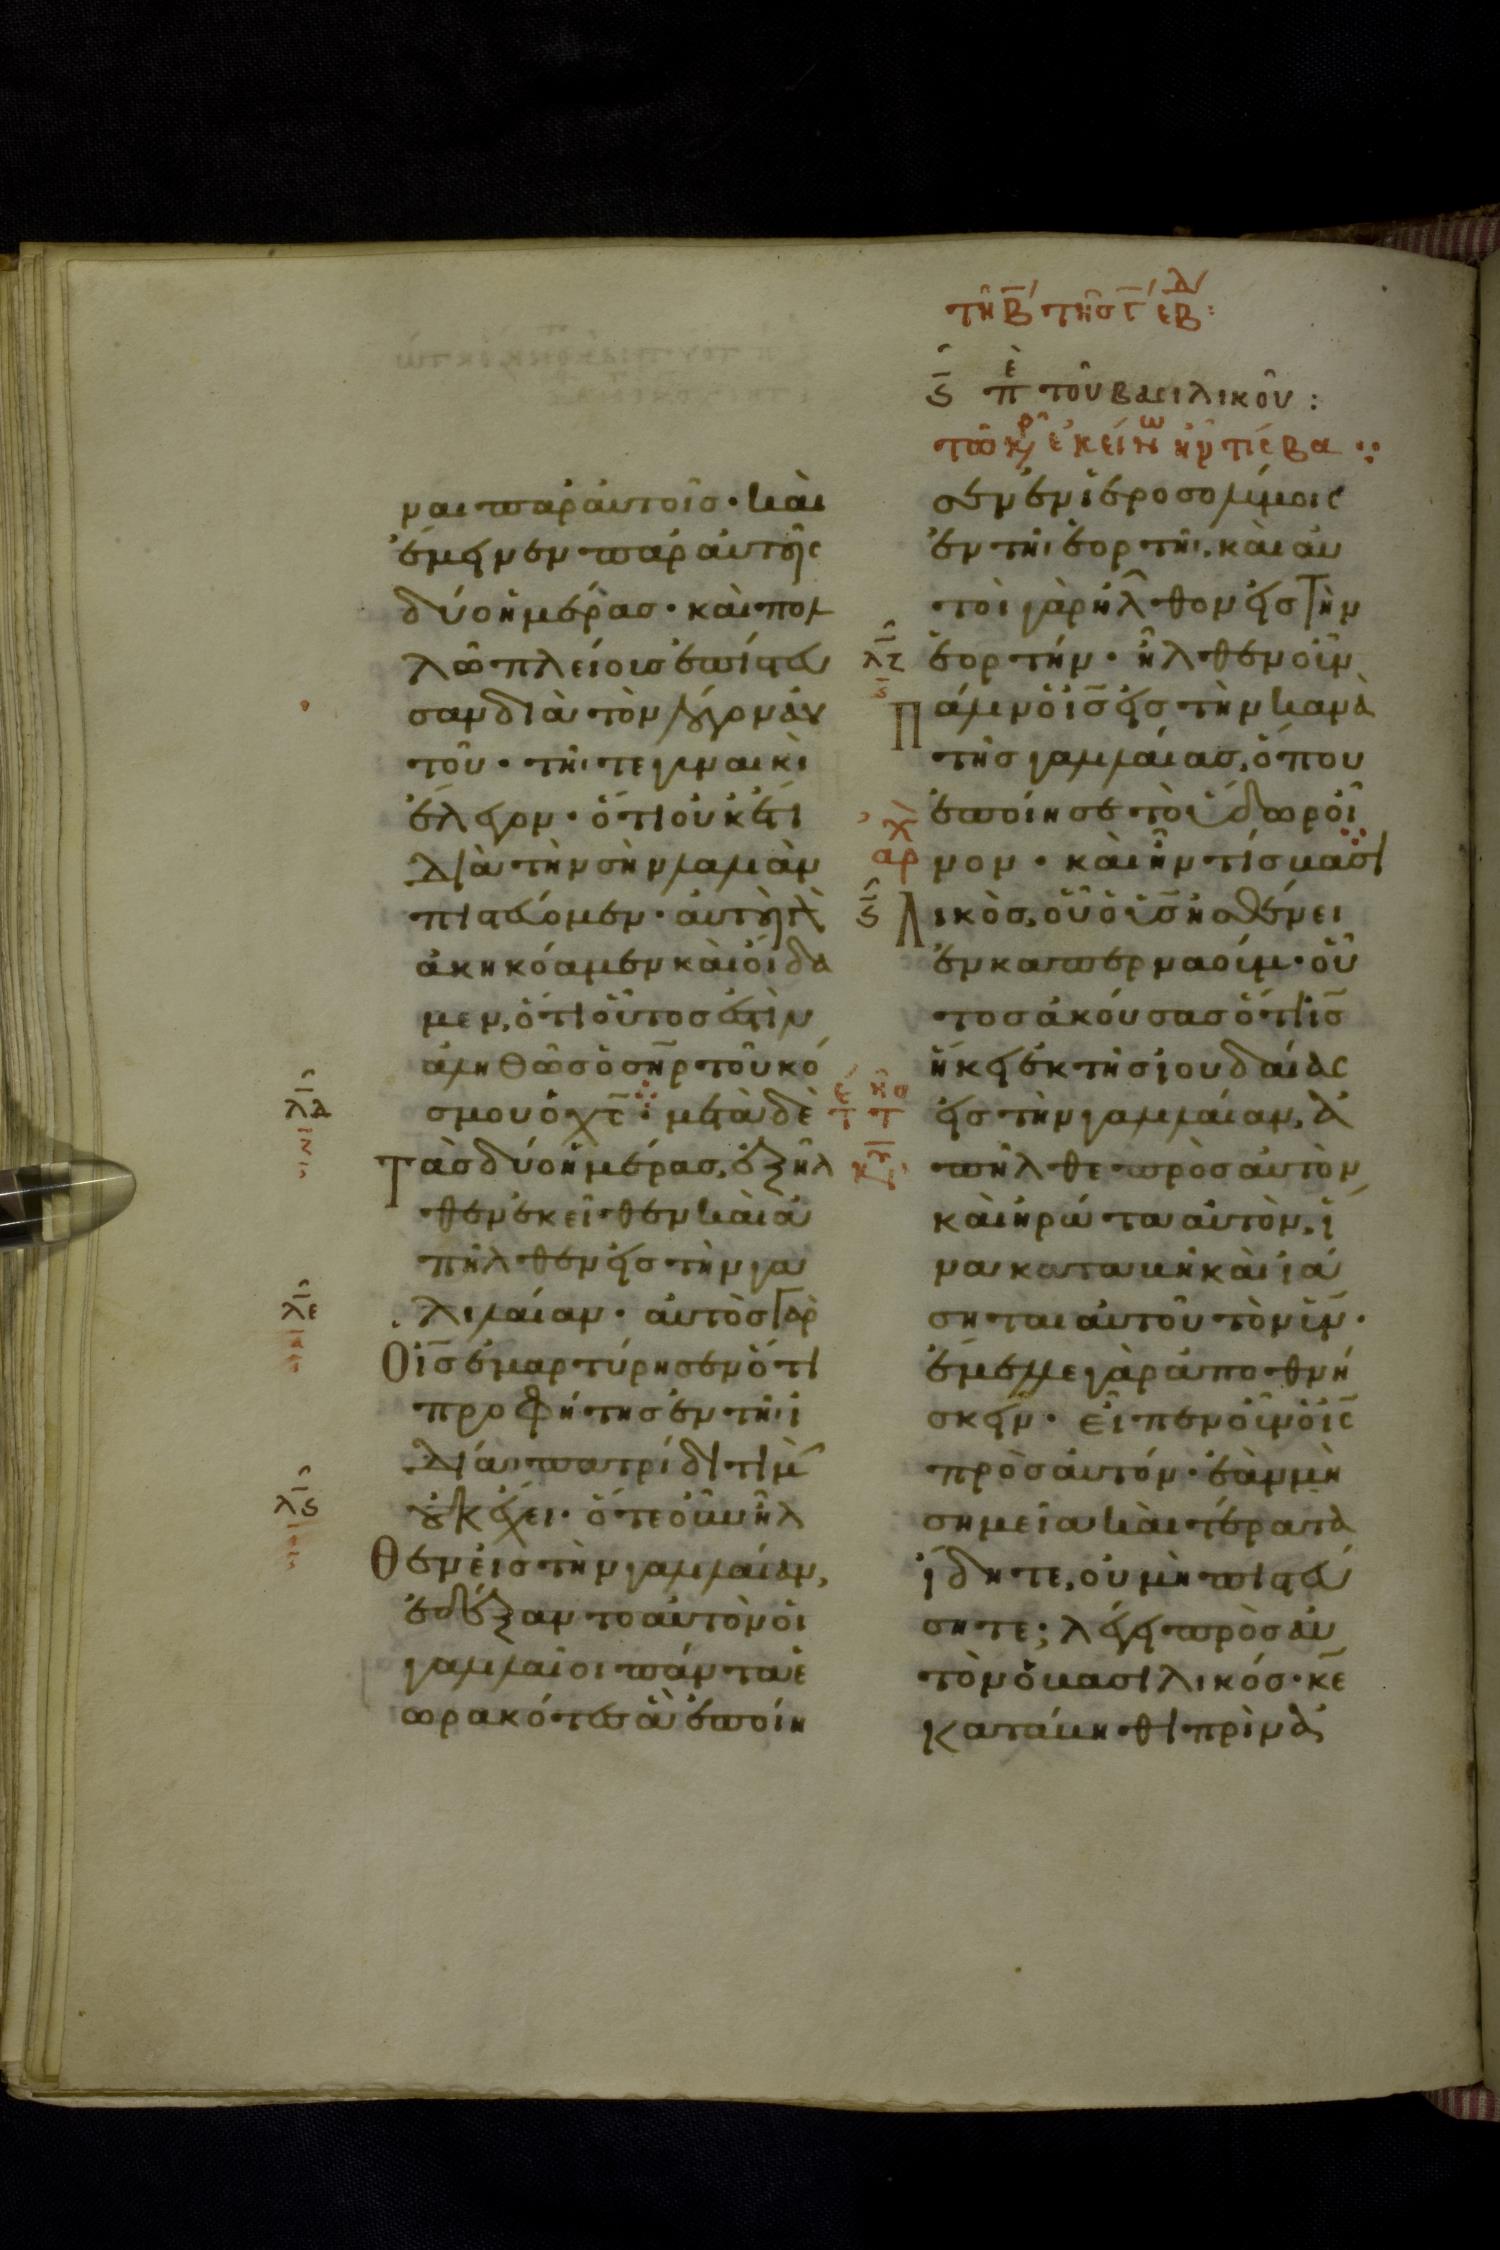 τῆ β τῆς γ ἑβ:
ϛ πε τοῦ βασιλικοῦ:
τῶ κρ ἐκείνω ἦν τις βα
ναι παρ αὐτοῖσ· καὶ
ἔμεινεν παρ αὐτοῖς
δύο ἡμέρασ· καὶ πολ
λῶ πλείουσ ἐπίστευ
σαν διὰ τὸν λόγον αὐ
τοῦ· τῆι τε γυναικὶ
ἔλεγον· ὅτι οὐκέτι
διὰ τὴν σὴν λαλιὰν
πιστεύομεν· αὐτοὶ γὰρ
ἀκηκόαμεν καὶ οἴδα
μεν, ὅτι οὗτοσ ἐστὶν
ἀληθῶσ ὁ σηρ τοῦ κό
σμου ὁ χσ: μετὰ δὲ
λδ
τὰσ δύο ἡμέρασ, ἐξῆλ
θεν ἐκεῖθεν καὶ ἀ
πῆλθεν εἰσ τὴν γα
λιλαίαν· αὐτὸσ γὰρ
λε
ὁ ισ ἐμαρτύρησεν ὅτι
προφήτησ ἐν τῆι ἰ
δία πατρίδι τιμὴ
οὐκ ἔχει· ὅτε οὖν ἦλ
λϛ
θεν εἰσ τὴν γαλιλαίαν,
ἐδέξαντο αὐτὸν οἱ
γαλιλαῖοι πάντα ἑ
ωρακότεσ ἃ ἐποίη
σεν ἐν ἱεροσολύμοις
ἐν τῆι ἑορτῆι, καὶ αὐ
τοὶ γὰρ ἦλθον εἰσ τὴν
λζ
ἑορτήν· ἦλθεν οὖν
πάλιν ὁ ισ εἰσ τὴν κανὰ
τῆσ γαλιλαίασ, ὅπου
ἐποίησε τὸ ὕδωρ οἶ
αρχ
νον· καὶ ἦν τισ βασι
ϛ
λικὸσ, οὗ ὁ υσ ἠσθένει
ἐν καπερναούμ· οὗ
τοσ ἀκούσασ ὅτι ισ
ἥκει ἐκ τῆσ ἰουδαίας
εἰσ τὴν γαλιλαίαν, ἀ
πῆλθε πρὸσ αὐτὸν
καὶ ἠρώτα αὐτὸν, ἵ
να καταβῆ καὶ ἰά
σηται αὐτοῦ τὸν υν·
ἔμελλε γὰρ ἀποθνή
σκειν· εἶπεν οὖν ὁ ις
πρὸσ αὐτόν· ἐὰν μὴ
σημεῖα καὶ τέρατα
ἴδητε, οὐ μὴ πιστεύ
σητε; λέγει πρὸσ αὐ
τὸν ὁ βασιλικόσ· κε
κατάβηθι πρὶν ἀ